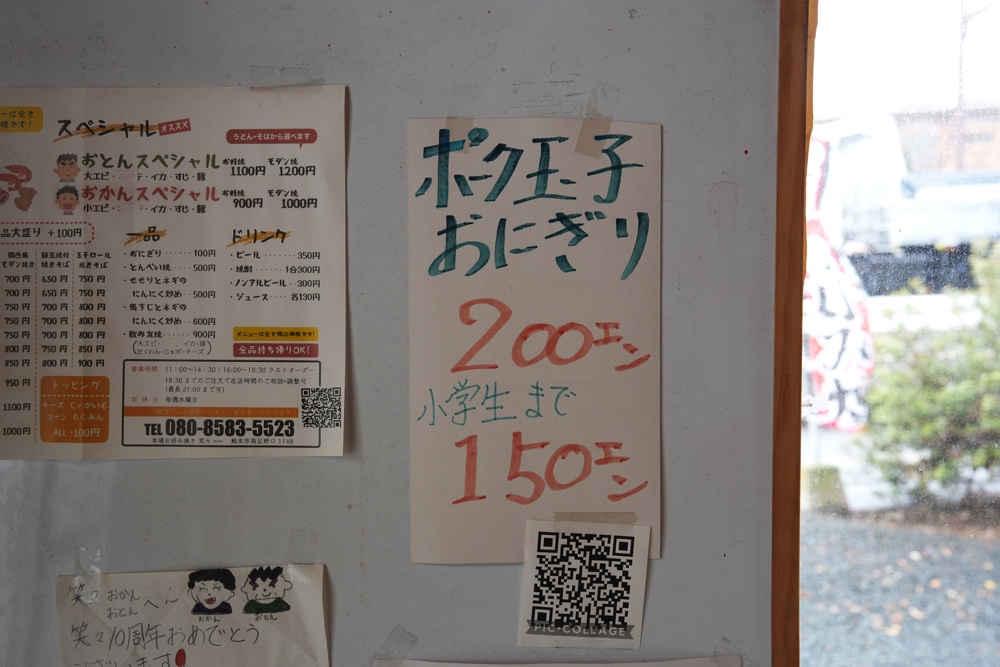 スペシャル オススメ
うどん・そばから選べます
おとんスペシャル お好焼 1100円 モダン焼 1200円
大エビ・ ・イカ・すじ・豚
おかんスペシャル お好焼 900円 モダン焼 1000円
小エビ・ ・イカ・すじ・豚
品大盛り +100円
関西風 モダン焼き
700円
700円
750円
750円
750円
800円
850円
950円
1100円
1000円
目玉焼付 焼きそば
650円
650円
700円
700円
700円
750円
800円
玉子ロール 焼きそば
750円
750円
800円
800円
800円
850円
900円
トッピング
チーズ じゃがいも
コーン たくあん
ALL +100円
一品
・おにぎり・・・・・100円
・とんぺい焼・・・・500円
・せせりとネギの
にんにく炒め・・500円
・馬すじとネギの
にんにく炒め・・600円
・飲み友焼・・・・・900円
たくわん・じゃが・チーズ
ドリンク
・ビール・・・・・350円
・焼酎・・・・1合300円
・ノンアルビール・・300円
・ジュース・・・各130円
メニューは全て税込価格です!
全品持ち帰りOK!
営業時間 11:00〜14:30 / 16:00〜18:30 ラストオーダー
18:30 までのご注文で在店時間のご相談・調整可
(最長 21:00 まで可)
定休日 毎週水曜日
TEL 080-8583-5523
本場お好み焼き 笑々 熊本市南区野口 1148
ポーク玉子
おにぎり
200エン
小学生まで
150エン
PIC-COLLAGE
笑々 おかん おとん へ
おかん おとん
笑々10周年おめでとう
ございます!